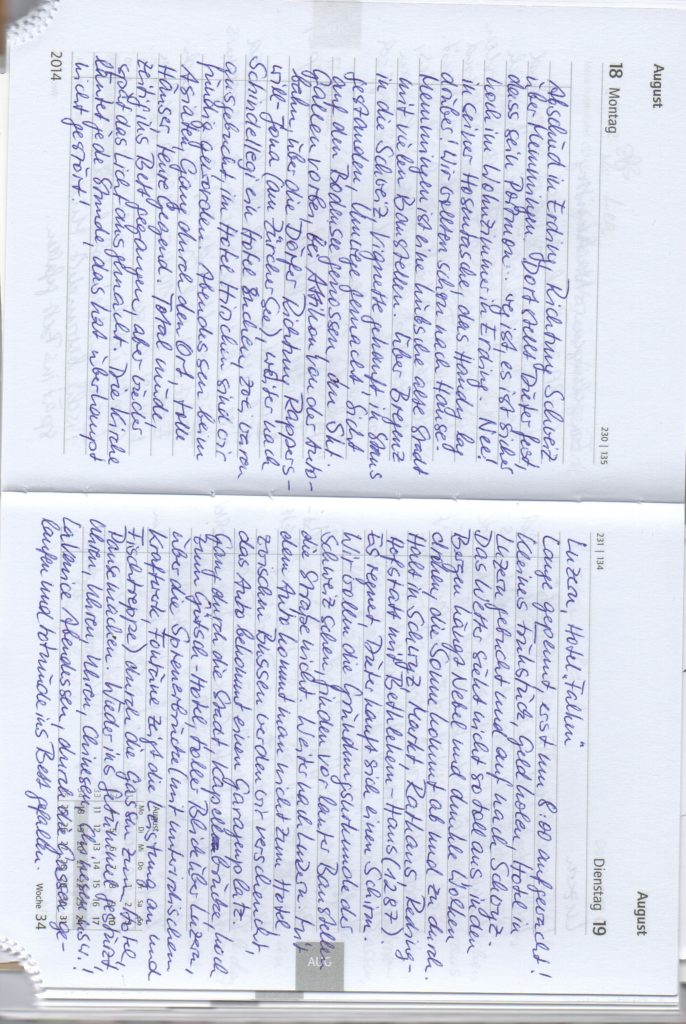 August
18 Montag
230 | 135
Abschied in Erding, Richtung Schweiz
über Memmingen. Dort stellt Dieter fest,
dass sein Portmon... weg ist, es ist sicher
noch im Wohnzimmer in Erding. Nee!
in seiner Hosentasche, das Handy lag
drüber! Wir wollten schon nach Hause!
Memmingen ist eine hübsche alte Stadt
mit vielen Baustellen. Über Bregenz
in die Schweiz, Vignette gekauft, im Stau
gestanden, Umwege gemacht, Sicht
auf den Bodensee genossen, an St.
Gallen vorbei, bei Attikon von der Auto-
bahn, über die Dörfer Richtung Rappers-
will-Jona (am Zürcher See), weiter nach
Schindellegi, ein Hotel suchen, zwei waren
ausgebucht, im Hotel Hirschen sind wir
fündig geworden. Abendessen beim
Asiaten, Gang durch den Ort, tolle
Häuser, teure Gegend. Total müde,
zeitig ins Bett gegangen, aber wieder
spät das Licht ausgemacht. Die Kirche
läutet jede Stunde, das hat überhaupt
nicht gestört!
2014
August
Dienstag 19
231 | 134
Luzern, Hotel „Falken“
Lange gepennt, erst um 8:00 aufgewacht!
Kleines Frühstück, Geld holen, Hotel in
Luzern gebucht und auf nach Schwyz.
Das Wetter sieht nicht so toll aus, in den
Bergen hängt Nebel und dunkle Wolken
drohen, die Sonne kommt ab und zu durch.
Halt in Schwyz, Markt, Rathaus, Reding-
Hofstatt mit Bethlehem-Haus (1287).
Es regnet, Dieter kauft sich einen Schirm.
Wir wollen die Gründungsurkunde der
Schweiz sehen, finden vor lauter Baustellen
die Straße nicht. Weiter nach Luzern. Mit
dem Auto kommt man nicht zum Hotel,
zwischen Bussen werden wir verscheucht,
das Auto bekommt einen Garagenplatz.
Gang durch die Stadt, Kapellbrücke, hoch
zum Gütsch-Hotel, toller Blick über Luzern,
über die Spreuerbrücke (mit unterirdischem
Kraftwerk, Fontäne zeigt die Leistung an und
Fischtreppe) durch die Gassen zum Hotel,
Pause machen. Wieder ins Getümmel gestürzt,
Uhren, Uhren, Uhren, Chinesen, Chinesen..!
La Venice Abendessen, durch die Gassen ge-
laufen und totmüde ins Bett gefallen.
August
Mo Di Mi Do Fr Sa So
Woche 34
AUG